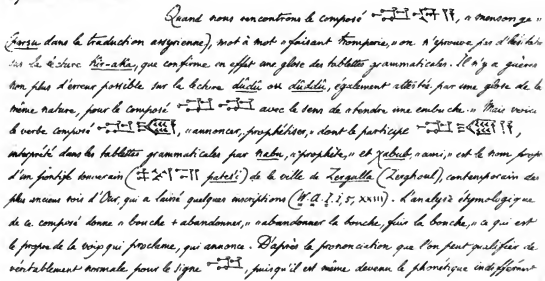 Quand nous rencontrons le composé , « mensonge »
(karsu dans la traduction assyrienne), mot à mot « faisant tromperie, » on n'éprouve pas d'hésitation
sur la lecture kir-aka, que confirme en effet une glose des tablettes grammaticales. Il n'y a guères
non plus d'erreur possible sur la lecture dûdû ou dûddû, également attestée par une glose de la
même nature, pour le composé avec le sens de « tendre une embuche. » Mais voici
le verbe composé , « annoncer, prophétiser, » dont le participe ,
interprété dans les tablettes grammaticales par nabu, « prophète, » et , « ami, » est le nom propre
d'un pontife souverain ( patesi) de la ville de Zergulla (Zerghoul), contemporain des
plus anciens rois d'Our, qui a laissé quelques inscriptions (W. A. I. I, 5, XXIII). L'analyse étymologique
de ce composé donne « bouche + abandonner, » « abandonner la bouche, fuir la bouche, » ce qui est
le propre de la voix qui proclame, qui annonce. D'après la prononciation que l'on peut qualifier de
véritablement normale pour le signe , puisqu'il est même devenu le phonétique indifférent